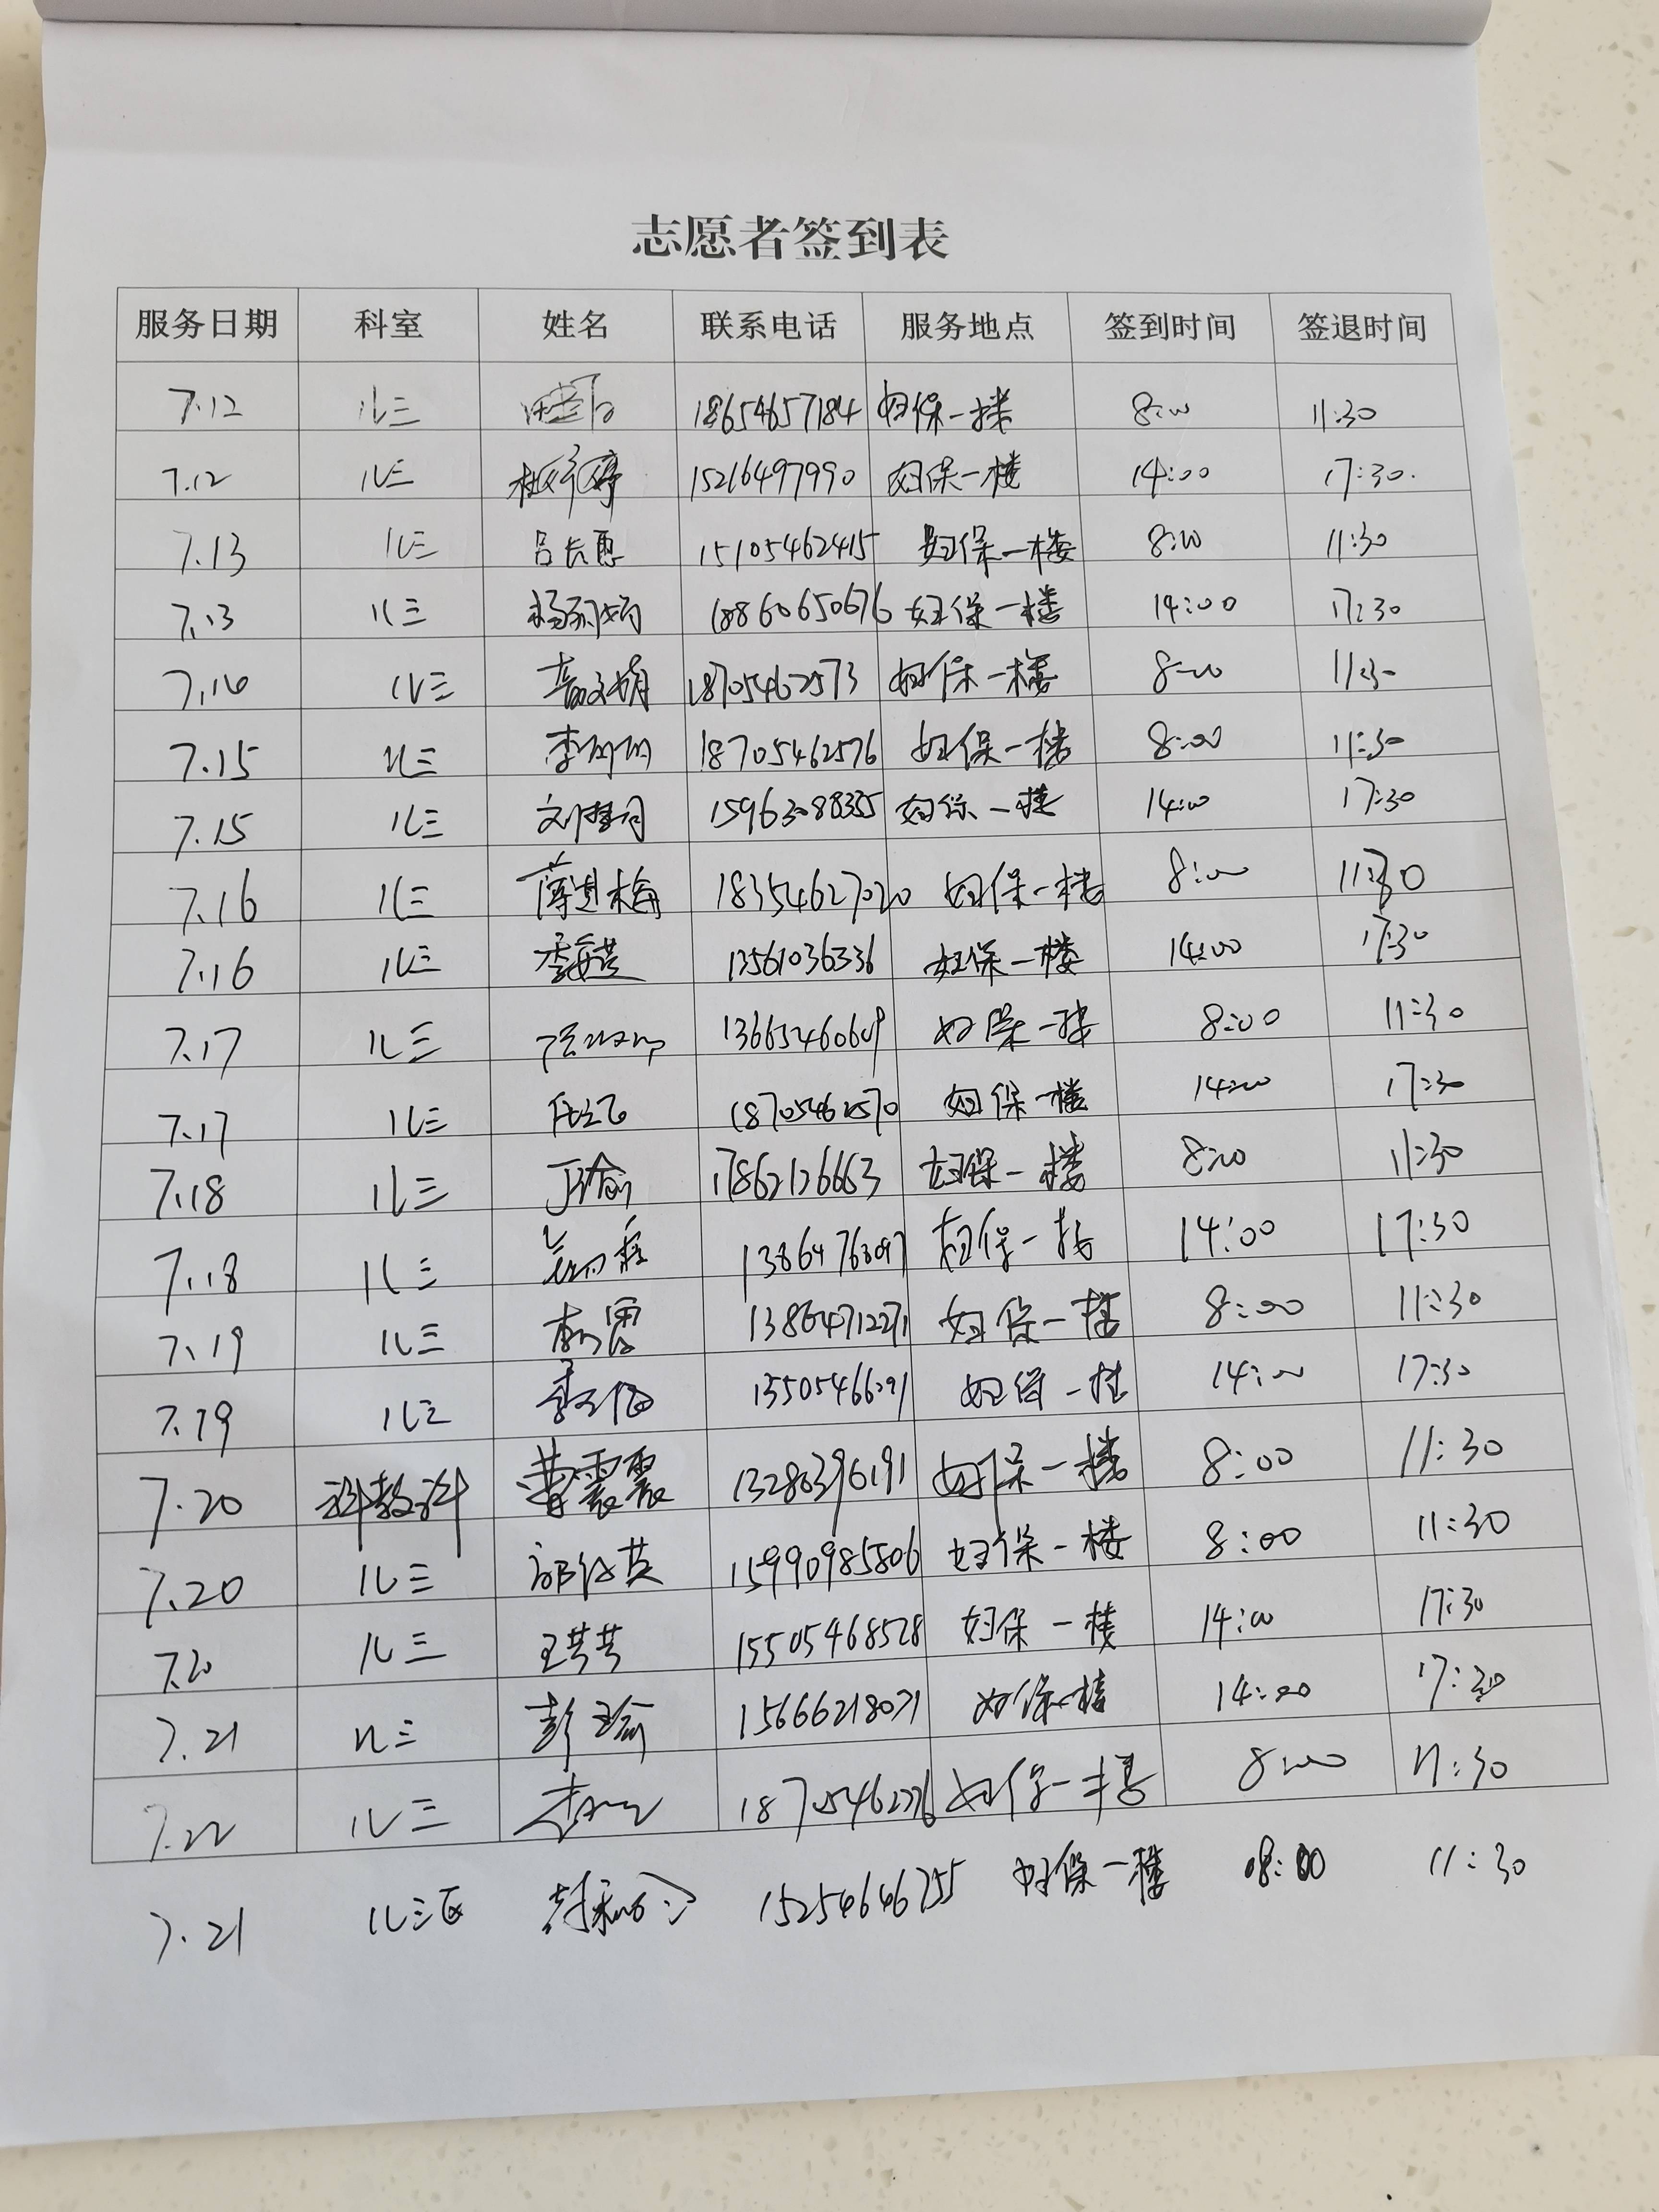 志愿者签到表
服务日期 科室 姓名 联系电话 服务地点 签到时间 签退时间
7.12 儿三 18654657184 妇保一楼 8:00 11:30
7.12 儿三 15216497990 妇保一楼 14:00 17:30.
7.13 儿三 吕长惠 15105462415 妇保一楼 8:00 11:30
7.13 儿三 18860650676 妇保一楼 14:00 17:30
7.14 儿三 18705462573 妇保一楼 8:00 11:30
7.15 儿三 李丽丽 18705462576 妇保一楼 8:00 11:30
7.15 儿三 15963088335 妇保一楼 14:00 17:30
7.16 儿三 薄进梅 18354627020 妇保一楼 8:00 11:30
7.16 儿三 13561036336 妇保一楼 14:00 17:30
7.17 儿三 妇保一楼 8:00 11:30
7.17 儿三 18705462570 妇保一楼 14:00 17:30
7.18 儿三 17862126663 妇保一楼 8:00 11:30
7.18 儿三 妇保一楼 14:00 17:30
7.19 儿三 李霞 13864712271 妇保一楼 8:00 11:30
7.19 儿三 妇保一楼 14:00 17:30
7.20 科教科 曹震震 13280396191 妇保一楼 8:00 11:30
7.20 儿三 15990985806 妇保一楼 8:00 11:30
7.20 儿三 王芸芸 15505468528 妇保一楼 14:00 17:30
7.21 儿三 彭瑜 15666218071 妇保一楼 14:00 17:30
7.22 儿三 妇保一楼 8:00 11:30
7.21 儿三区 15254646755 妇保一楼 08:00 11:30